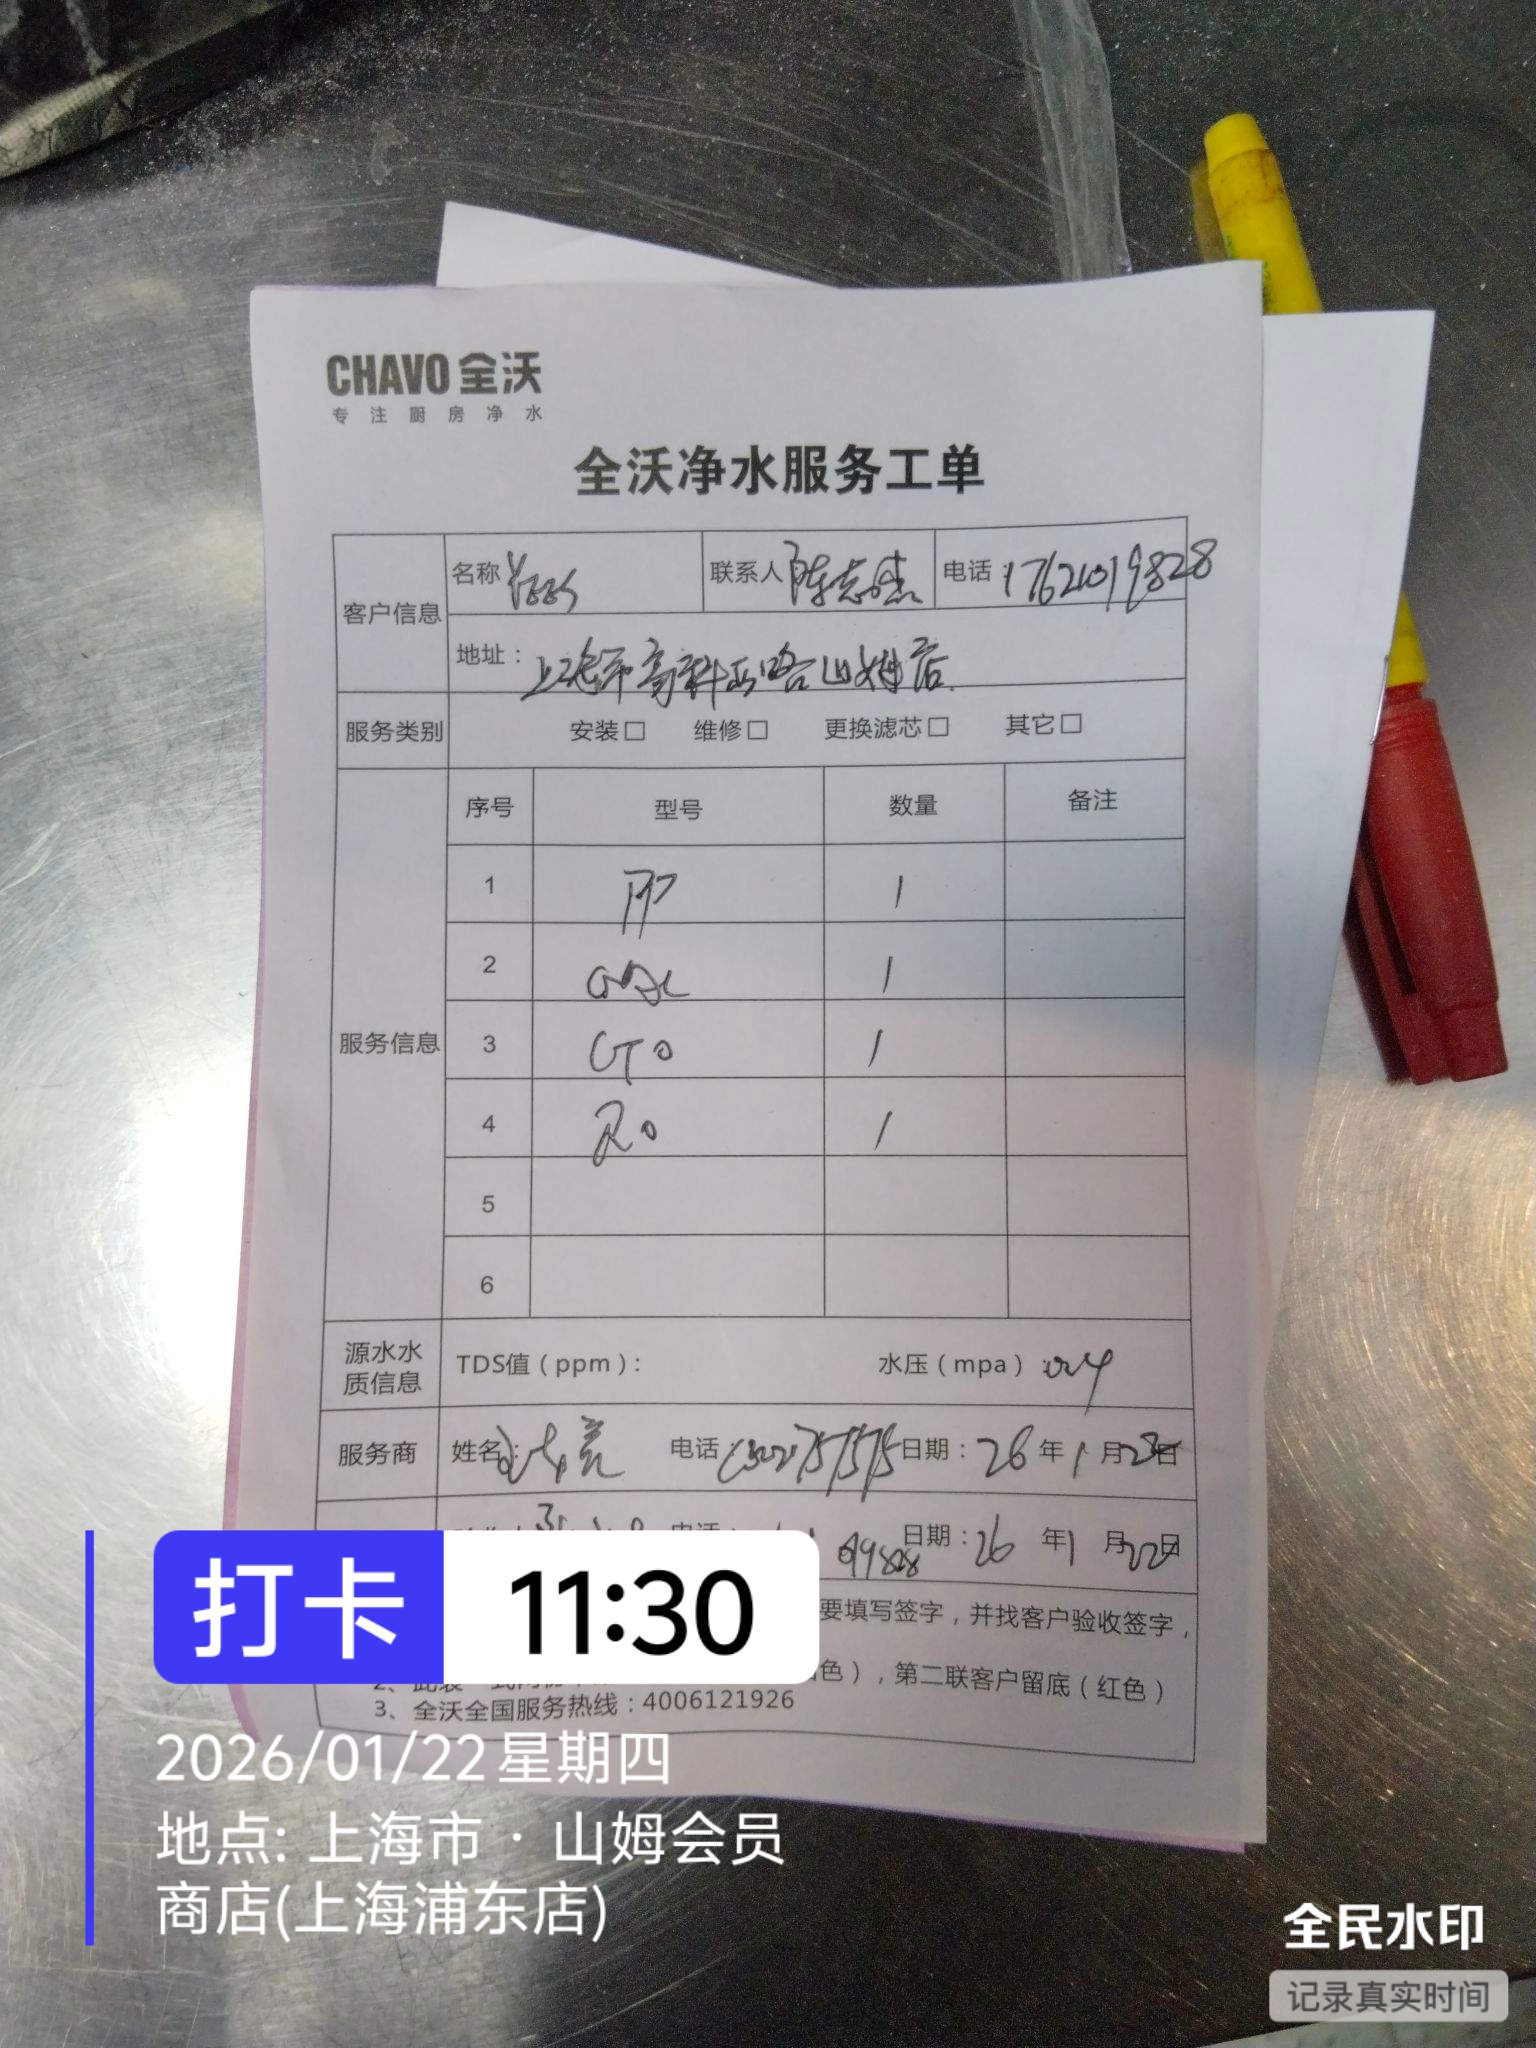 CHAVO 全沃
专注厨房净水
全沃净水服务工单
客户信息 名称 联系人 陈志杰 电话 17621019828
地址： 上海市高科西路山姆店
服务类别 安装□ 维修□ 更换滤芯□ 其它□
服务信息 序号 型号 数量 备注
1 PP 1
2 1
3 CTO 1
4 RO 1
5
6
源水水质信息 TDS值（ppm）： 水压（mpa）
服务商 姓名： 电话 日期：26年1月
电话 19828 日期：26年1月22日
要填写签字，并找客户验收签字，
色），第二联客户留底（红色）
3、全沃全国服务热线：4006121926
打卡 11:30
2026/01/22 星期四
地点: 上海市 · 山姆会员
商店(上海浦东店)
全民水印
记录真实时间